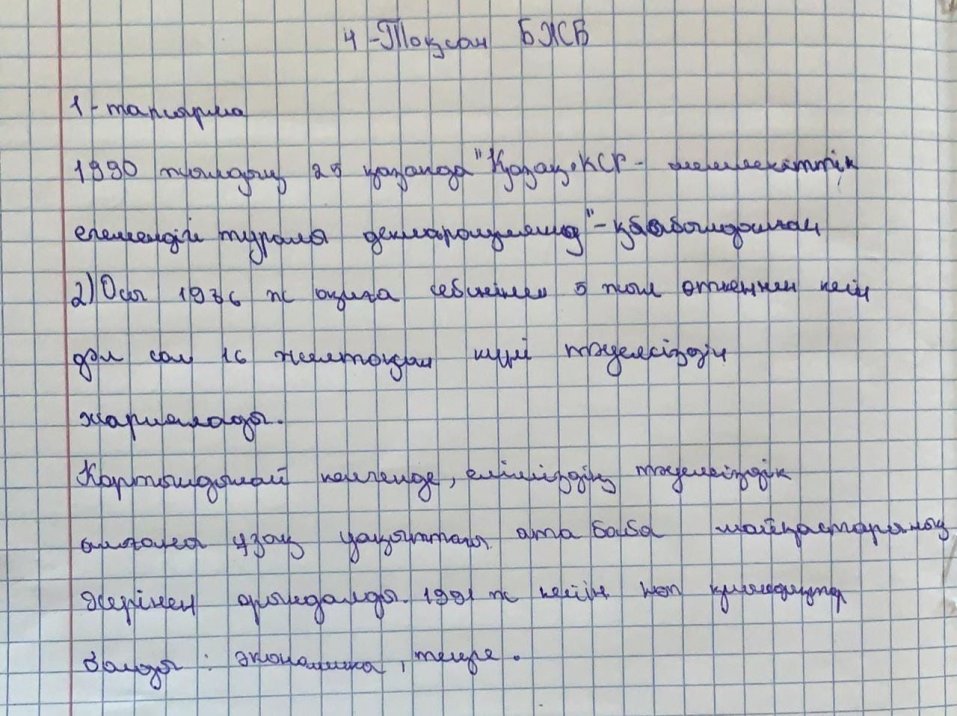 4-Тоқсан БЖБ
1-тапсырма
1990 жылдың 25 қазанда "Қазақ КСР-мемлекеттік
егемендігі турала декларациясы"-қабылдаған
2) Осы 1986 ж оқиға себінінен 5 жыл өткеннен кейін
дәл сол 16 желтоқсан күні тәуелсіздік
жариялады.
Қортындылай келгенде, еліміздің тәуелсіздік
алғаны ұзақ уақыттағы ата баба шайқастарының
жерінен орындалды. 1991 ж кейін көп қиындықтар
болды: экономика, теңге.